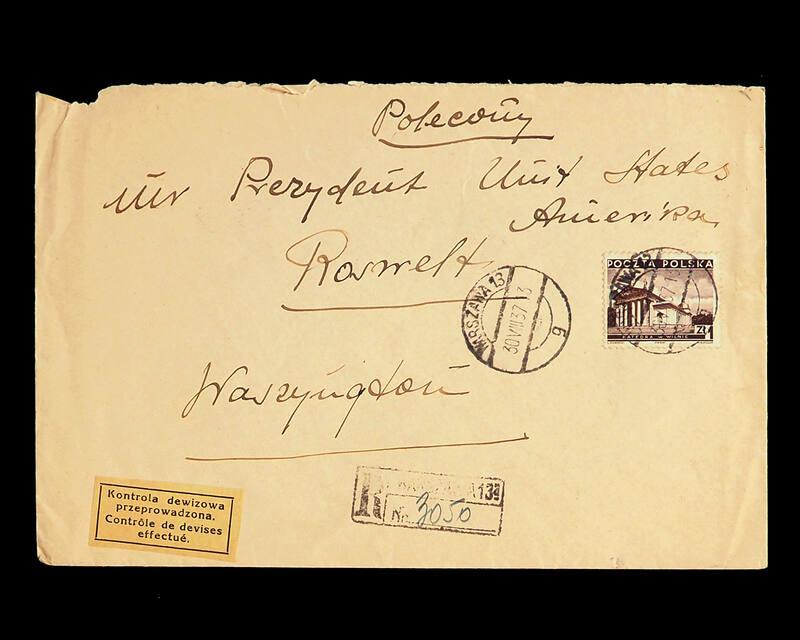 Polecony
Mr Prezydent Unit States
Amerika
Roswelt
Waszyngton
WARSZAWA 13
30 VIII 37 13
6
POCZTA POLSKA
1 ZŁ
KATEDRA W WILNIE
Kontrola dewizowa
przeprowadzona.
Contrôle de devises
effectué.
R WARSZAWA 13
Nr. 3050